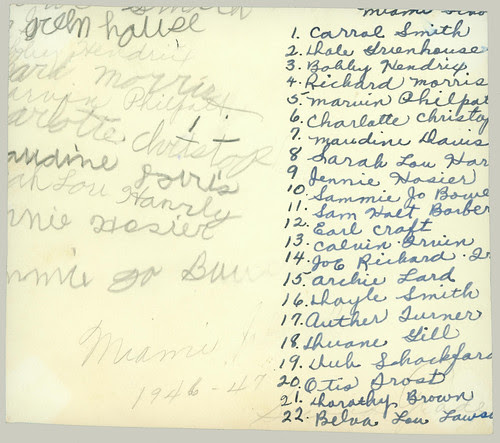 Smith
Greenhouse
Bobby Hendrix
Richard Morris
Marvin Philp
Charlotte Christoph
Maudine Davis
Sarah Lou Hardy
Jennie Hosier
Sammie Jo Bow
Miami
1946-47
Miami
1. Carrol Smith
2. Dale Greenhouse
3. Bobby Hendrix
4. Richard Morris
5. Marvin Philpa
6. Charlotte Christo
7. Maudine Davis
8. Sarah Lou Har
9. Jennie Hosier
10. Sammie Jo Bowe
11. Sam Holt Barber
12. Earl Craft
13. Calvin Bruin
14. Joe Richard
15. Archie Lard
16. Doyle Smith
17. Auther Turner
18. Duane Gill
19. Dub Schockford
20. Otis Frost
21. Dorothy Brown
22. Belva Lou Laws